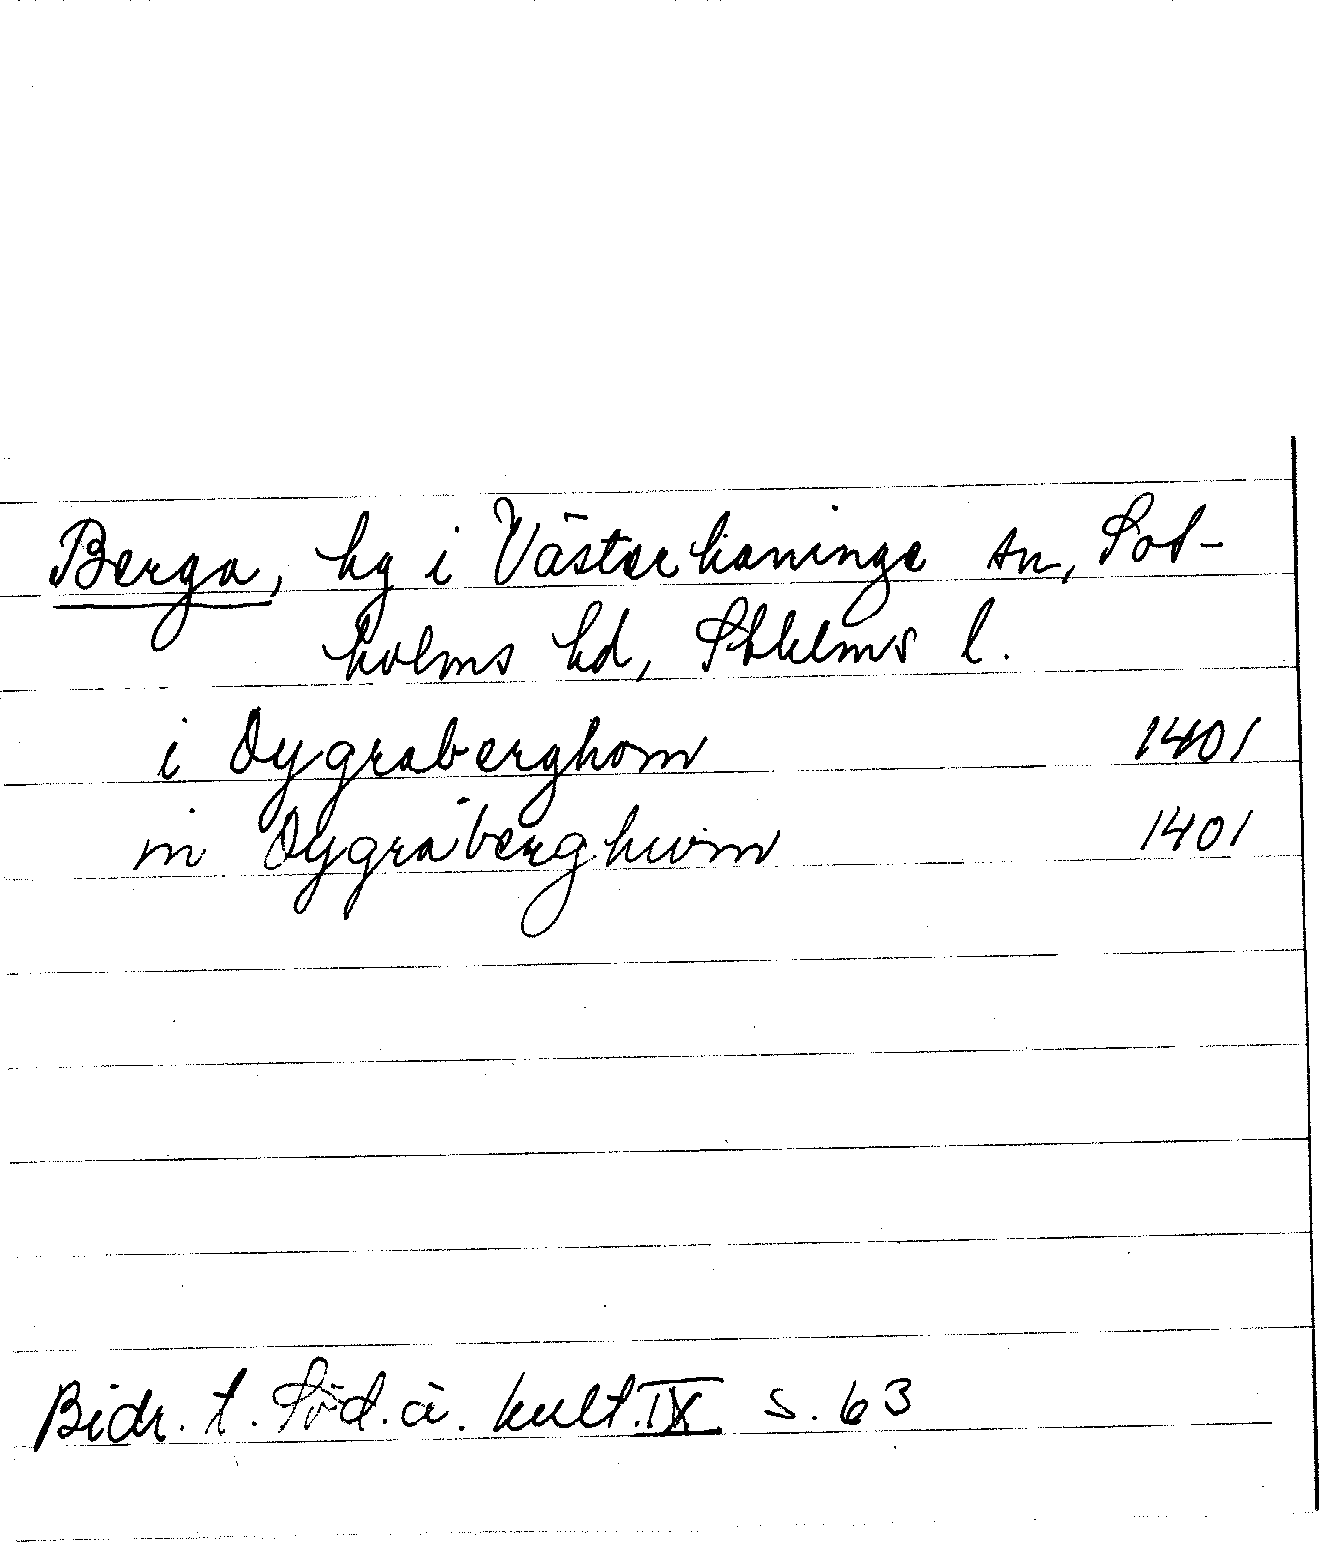 Berga, hg i Västerhaninge sn, Sot-
holms hd, Sthlms l.
i Dygraberghom 1401
in Dygraberghwm 1401
Bidr. t. Söd. ä. kult. IX s. 63